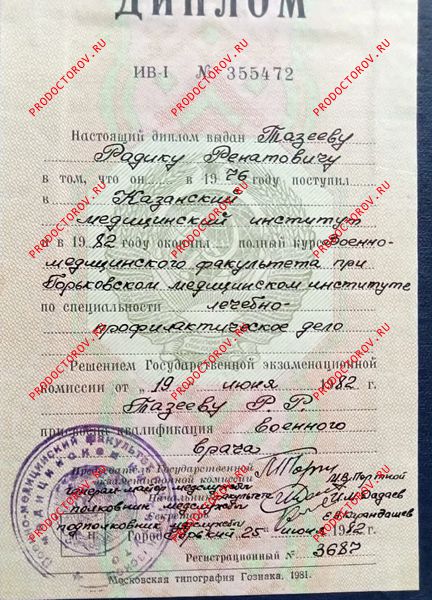 ДИПЛОМ
ИВ-I № 355472
Настоящий диплом выдан Тазееву
Радику Ренатовичу
в том, что он в 1976 году поступил
в Казанский
медицинский институт
и в 1982 году окончил полный курс Военно-
медицинского факультета при
Горьковском медицинском институте
по специальности лечебно-
профилактическое дело
Решением Государственной экзаменационной
комиссии от „19“ июня 1982 г.
Тазееву Р. Р.
присвоена квалификация военного
врача
Председатель Государственной
экзаменационной комиссии
генерал-майор медслужбы М.В. Портной
Начальник факультета
полковник медслужбы И.М. Дадаев
Секретарь
подполковник медслужбы Е.В. Карандашев
Город Горький 25 июня 1982 г.
Регистрационный № 3687
Московская типография Гознака. 1981.
PRODOCTOROV.RU